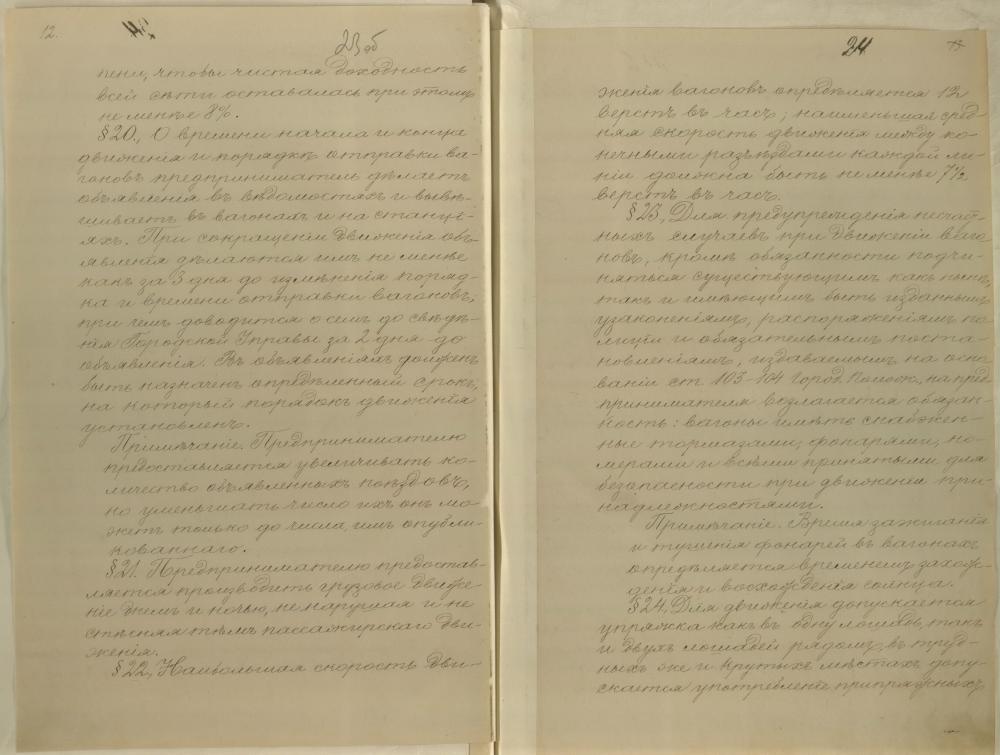 12.
23 об
пени, чтобы чистая доходность
всей сѣти оставалась при этомъ
не менѣе 8%.
§ 20. О времени начала и конца
движенія и порядкѣ отправки ва-
гоновъ предприниматель дѣлаетъ
объявленія въ вѣдомостяхъ и вывѣ-
шиваетъ въ вагонахъ и на станці-
яхъ. При сокращеніи движенія объ-
явленія дѣлаются имъ не менѣе
какъ за 3 дня до измѣненія поряд-
ка и времени отправки вагоновъ,
при чемъ доводится о семъ до свѣдѣ-
нія Городской Управы за 2 дня до
объявленія. Въ объявленіяхъ долженъ
быть назначенъ опредѣленный срокъ,
на который порядокъ движенія
установленъ.
Примѣчаніе. Предпринимателю
предоставляется увеличивать ко-
личество объявленныхъ поѣздовъ,
но уменьшать число ихъ онъ мо-
жетъ только до числа, имъ опубли-
кованнаго.
§ 21. Предпринимателю предостав-
ляется производить грузовое движе-
ніе днемъ и ночью, не нарушая и не
стѣсняя тѣмъ пассажирскаго дви-
женія.
§ 22. Наибольшая скорость дви-
24
женія вагоновъ опредѣляется 12
верстъ въ часъ; наименьшая сред-
няя скорость движенія между ко-
нечными разъѣздами каждой ли-
ніи должна быть не менѣе 7½
верстъ въ часъ.
§ 23. Для предупрежденія несчаст-
ныхъ случаевъ при движеніи ваго-
новъ, кромѣ обязанности подчи-
няться существующимъ какъ нынѣ,
такъ и имѣющимъ быть изданнымъ
узаконеніямъ, распоряженіямъ по-
лиціи и обязательнымъ поста-
новленіямъ, издаваемымъ на осно-
ваніи ст. 103-104 Город. Полож., на пред-
принимателя возлагается обязан-
ность: вагоны имѣть снабжен-
ные тормазами, фонарями, но-
мерами и всѣми принятыми для
безопасности при движеніи при-
надлежностями.
Примѣчаніе. Время зажиганія
и тушенія фонарей въ вагонахъ
опредѣляется временемъ захож-
денія и восхожденія солнца.
§ 24. Для движенія допускается
упряжка какъ въ одну лошадь, такъ
и двухъ лошадей рядомъ; въ труд-
ныхъ же и крутыхъ мѣстахъ допу-
скается употребленіе припряжныхъ